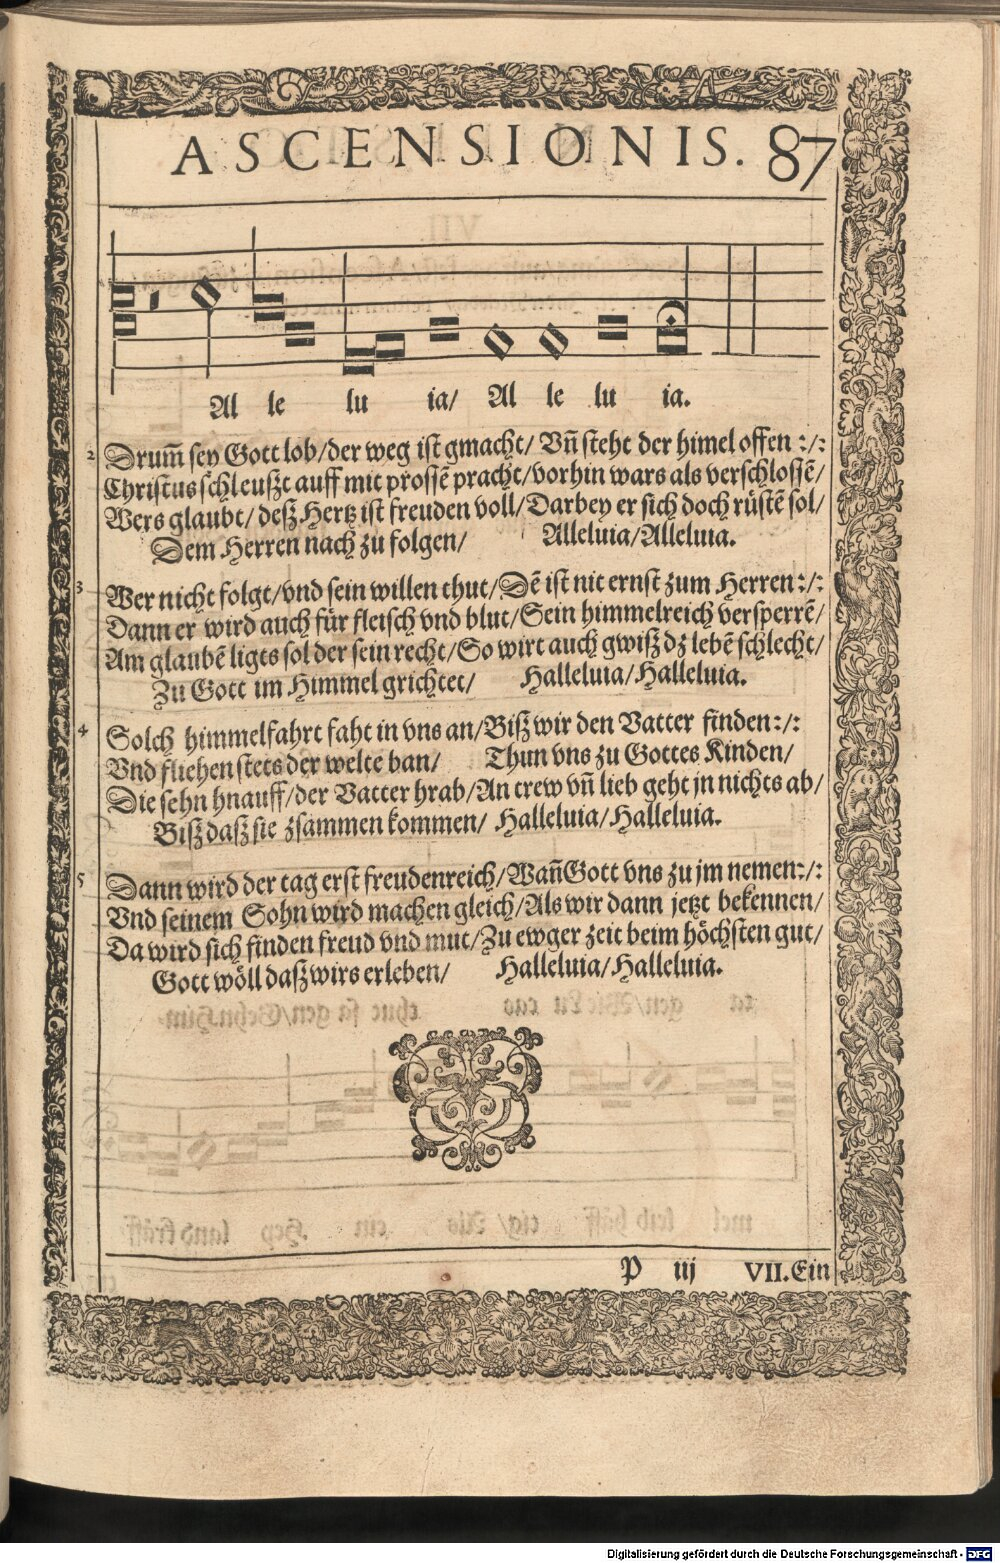 ASCENSIONIS. 87
Al le lu ia/ Al le lu ia.
2 Drum̃ sey Gott lob/der weg ist gmacht/ Vñ steht der himel offen :/:
Christus schleuszt auff mit prossẽ pracht/vorhin wars als verschlossẽ/
Wers glaubt/ desz Hertz ist freuden voll/Darbey er sich doch rüstẽ sol/
Dem Herren nach zu folgen/ Alleluia/Alleluia.
3 Wer nicht folgt/vnd sein willen thut/Dẽ ist nit ernst zum Herren:/:
Dann er wird auch für fleisch vnd blut/Sein himmelreich versperrẽ/
Am glaubẽ ligts sol der sein recht/So wirt auch gwisz dz lebẽ schlecht/
Zu Gott im Himmel grichtet/ Halleluia/Halleluia.
4 Solch himmelfahrt faht in vns an/Bisz wir den Vatter finden:/:
Vnd fliehen stets der welte ban/ Thun vns zu Gottes Kinden/
Die sehn hnauff/der Vatter hrab/An trew vñ lieb geht jn nichts ab/
Bisz dasz sie zsammen kommen/ Halleluia/Halleluia.
5 Dann wird der tag erst freudenreich/Wañ Gott vns zu jm nemen:/:
Vnd seinem Sohn wird machen gleich/Als wir dann jetzt bekennen/
Da wird sich finden freud vnd mut/Zu ewger zeit beim höchsten gut/
Gott wöll dasz wirs erleben/ Halleluia/Halleluia.
P iij VII. Ein
Digitalisierung gefördert durch die Deutsche Forschungsgemeinschaft - DFG